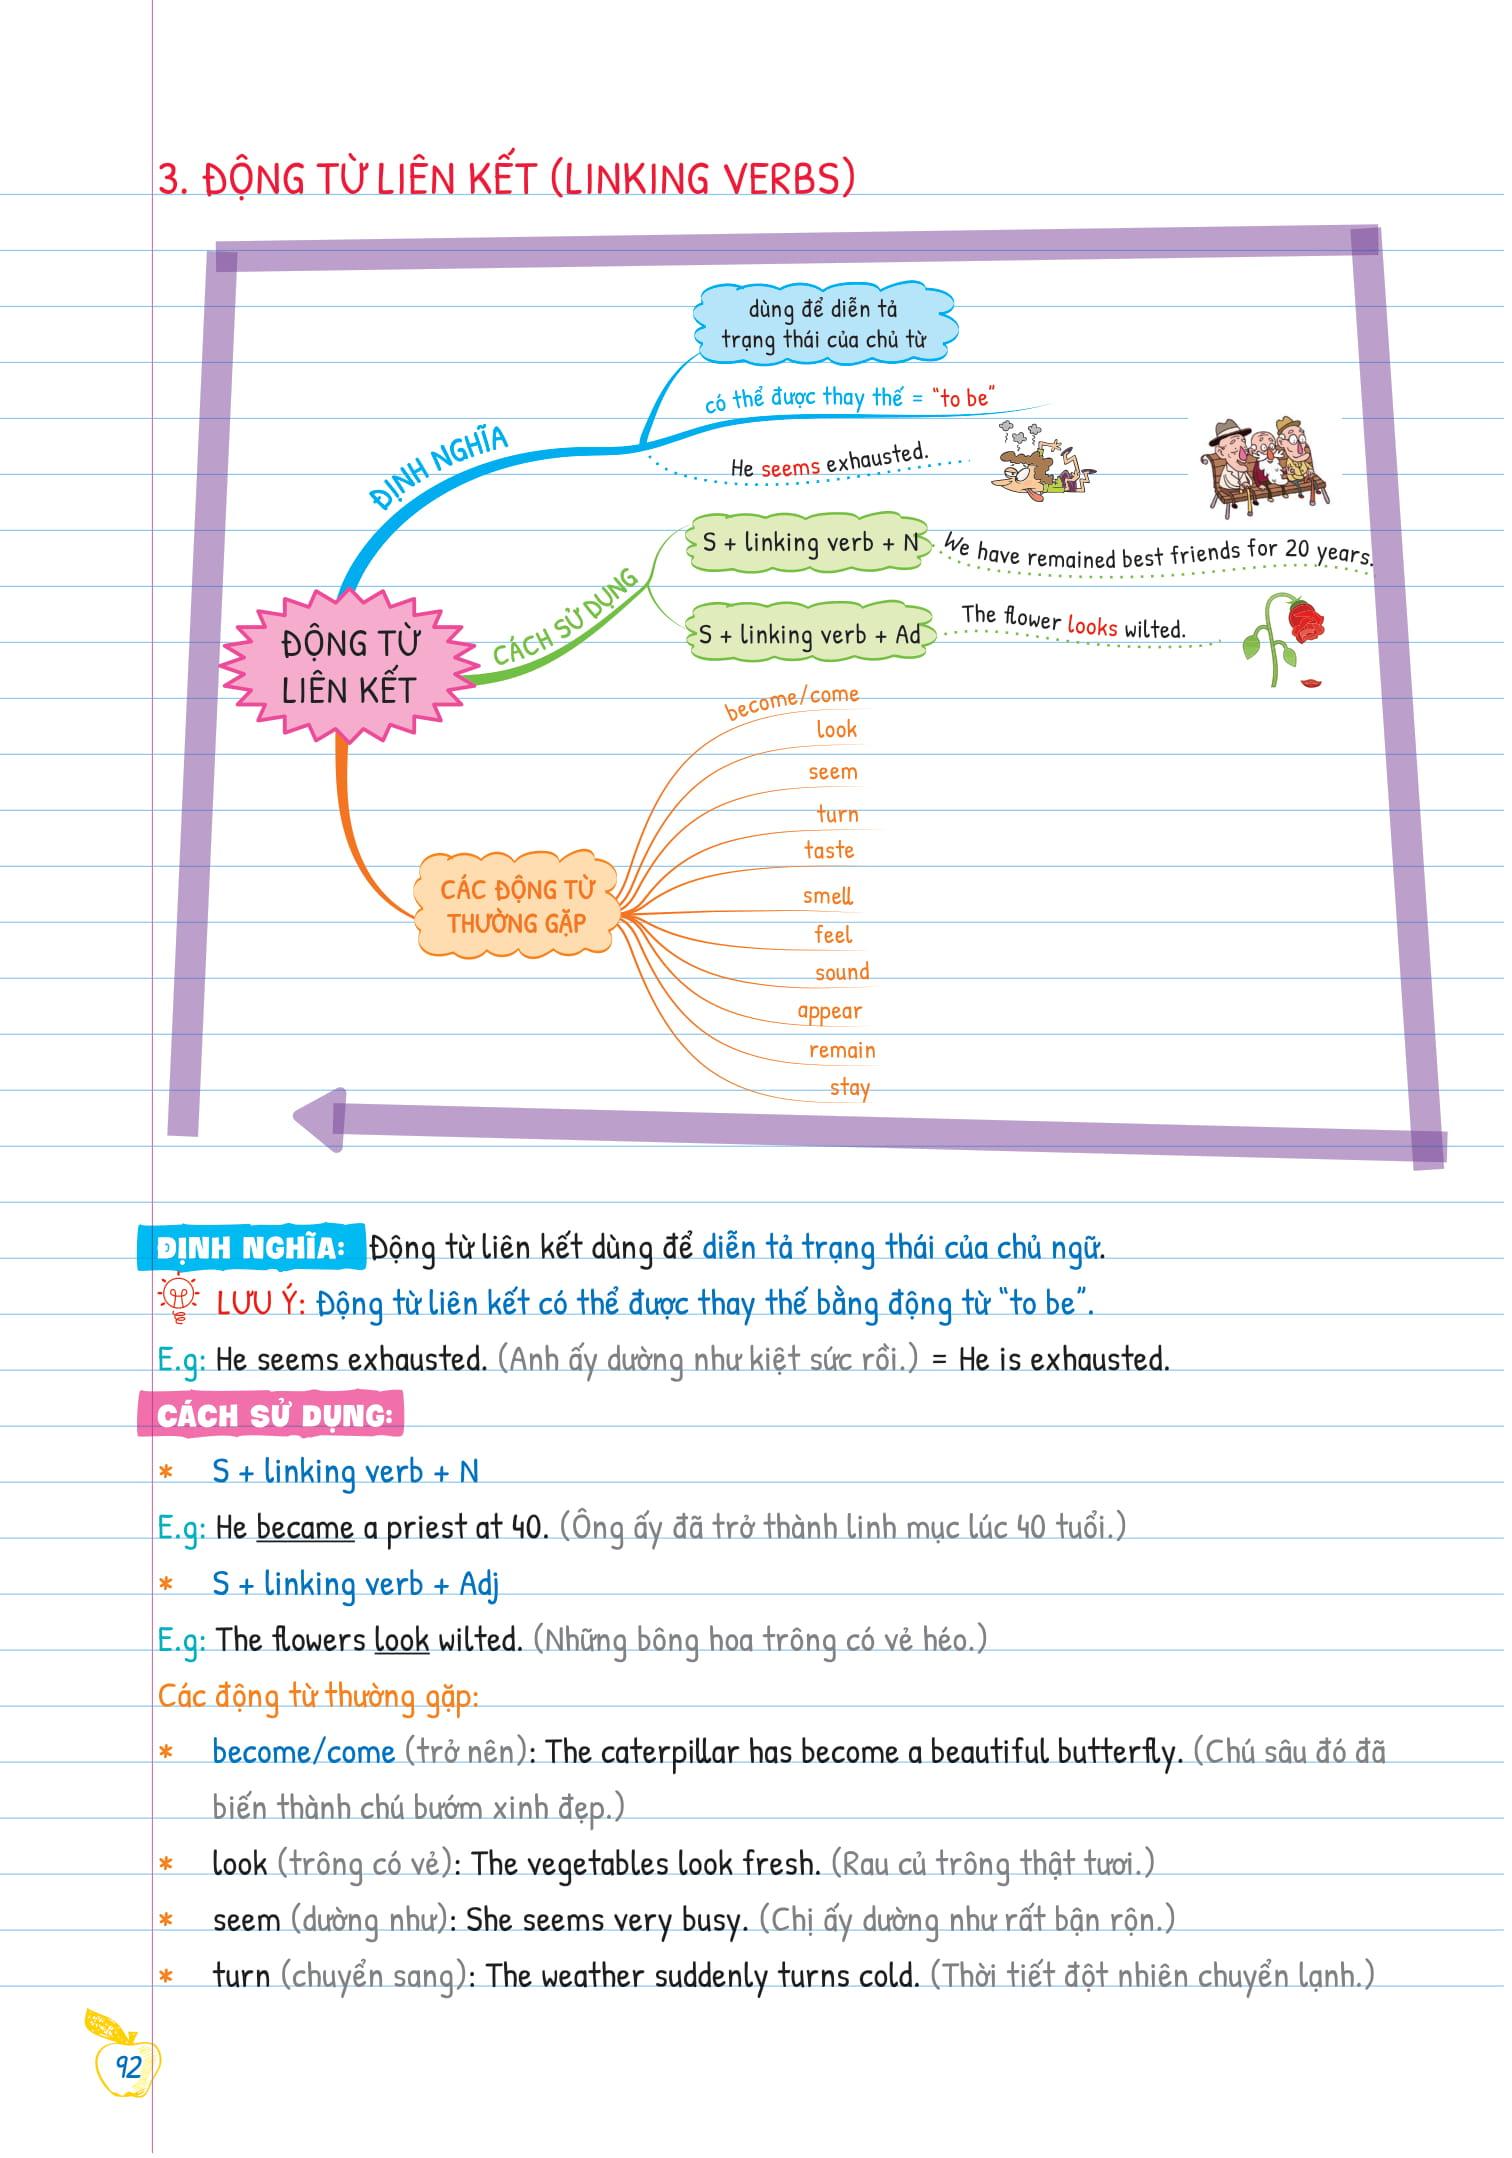 3. ĐỘNG TỪ LIÊN KẾT (LINKING VERBS)
dùng để diễn tả
trạng thái của chủ từ
có thể được thay thế = “to be”
ĐỊNH NGHĨA
He seems exhausted.
S + linking verb + N
We have remained best friends for 20 years.
CÁCH SỬ DỤNG
S + linking verb + Ad
The flower looks wilted.
ĐỘNG TỪ
LIÊN KẾT
become/come
look
seem
turn
taste
CÁC ĐỘNG TỪ
THƯỜNG GẶP
smell
feel
sound
appear
remain
stay
ĐỊNH NGHĨA: Động từ liên kết dùng để diễn tả trạng thái của chủ ngữ.
LƯU Ý: Động từ liên kết có thể được thay thế bằng động từ “to be”.
E.g: He seems exhausted. (Anh ấy dường như kiệt sức rồi.) = He is exhausted.
CÁCH SỬ DỤNG:
* S + linking verb + N
E.g: He became a priest at 40. (Ông ấy đã trở thành linh mục lúc 40 tuổi.)
* S + linking verb + Adj
E.g: The flowers look wilted. (Những bông hoa trông có vẻ héo.)
Các động từ thường gặp:
* become/come (trở nên): The caterpillar has become a beautiful butterfly. (Chú sâu đó đã
biến thành chú bướm xinh đẹp.)
* look (trông có vẻ): The vegetables look fresh. (Rau củ trông thật tươi.)
* seem (dường như): She seems very busy. (Chị ấy dường như rất bận rộn.)
* turn (chuyển sang): The weather suddenly turns cold. (Thời tiết đột nhiên chuyển lạnh.)
92